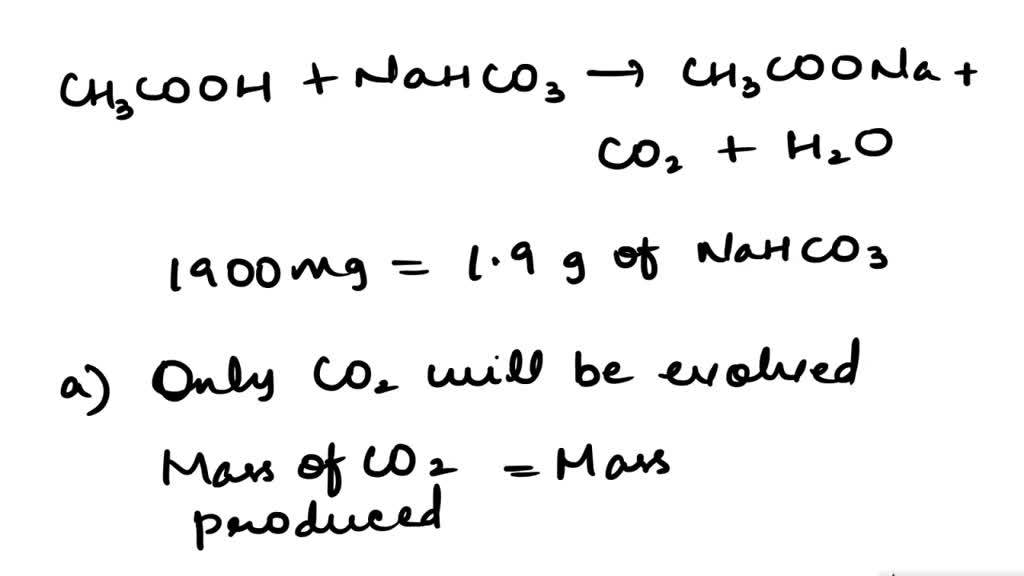 CH₃COOH + NaHCO₃ → CH₃COONa +
CO₂ + H₂O
1900mg = 1.9 g of NaHCO₃
a) Only CO₂ will be evolved
Mass of CO₂ = Mass
produced